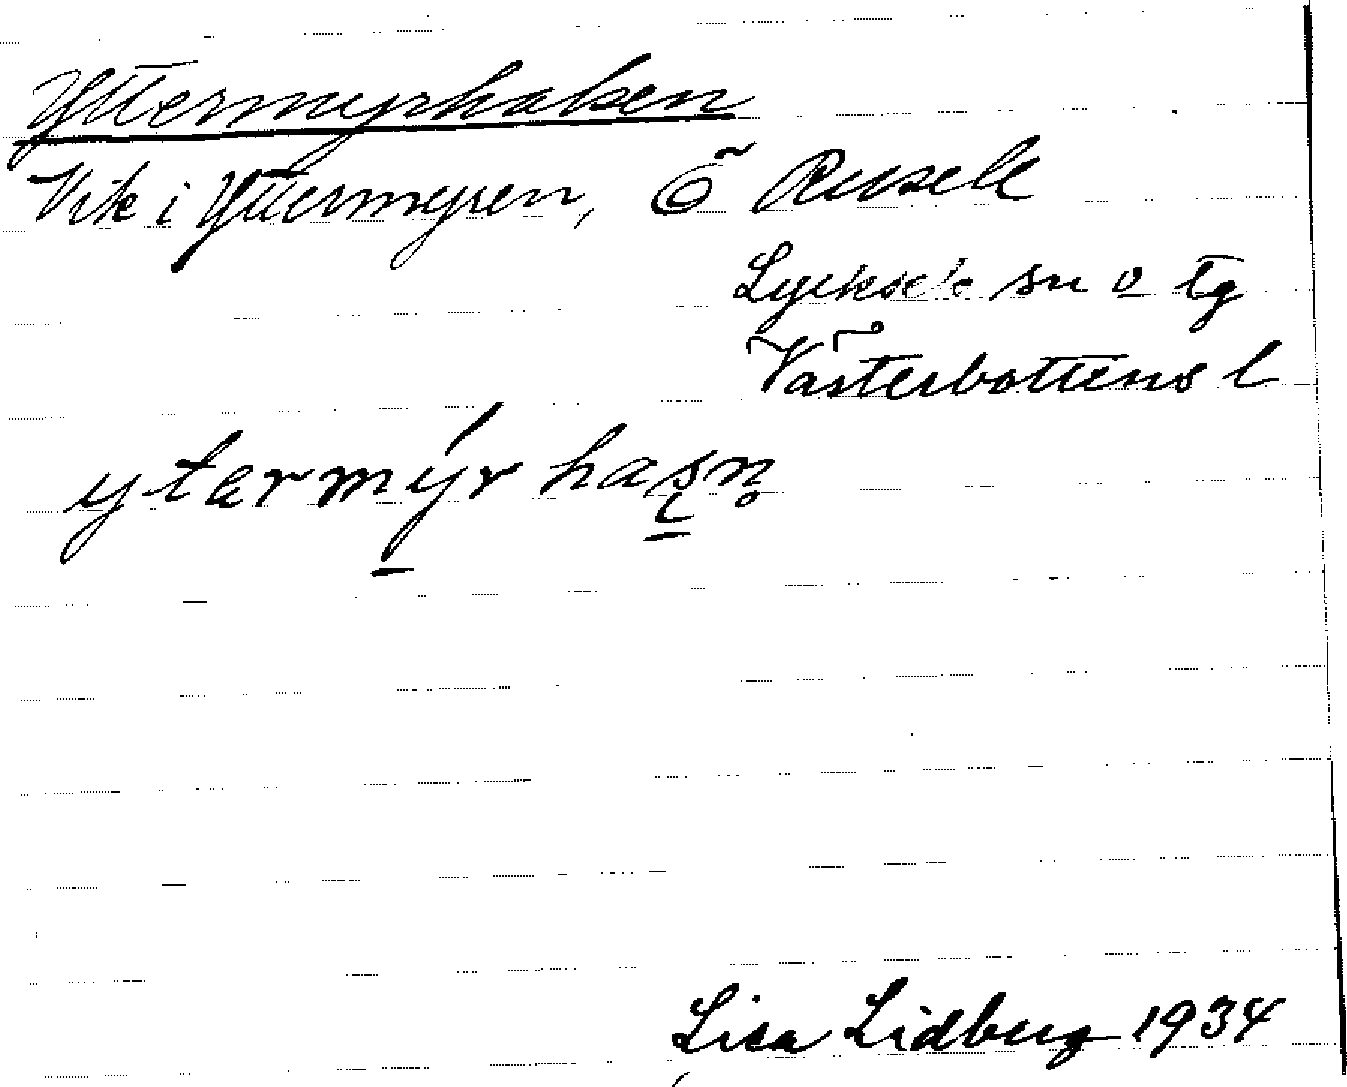 Yttermyrhaken
Vik i Yttermyren, Ö Rusele
Lycksele sn o tg
Västerbottens l
Lisa Lidberg 1934